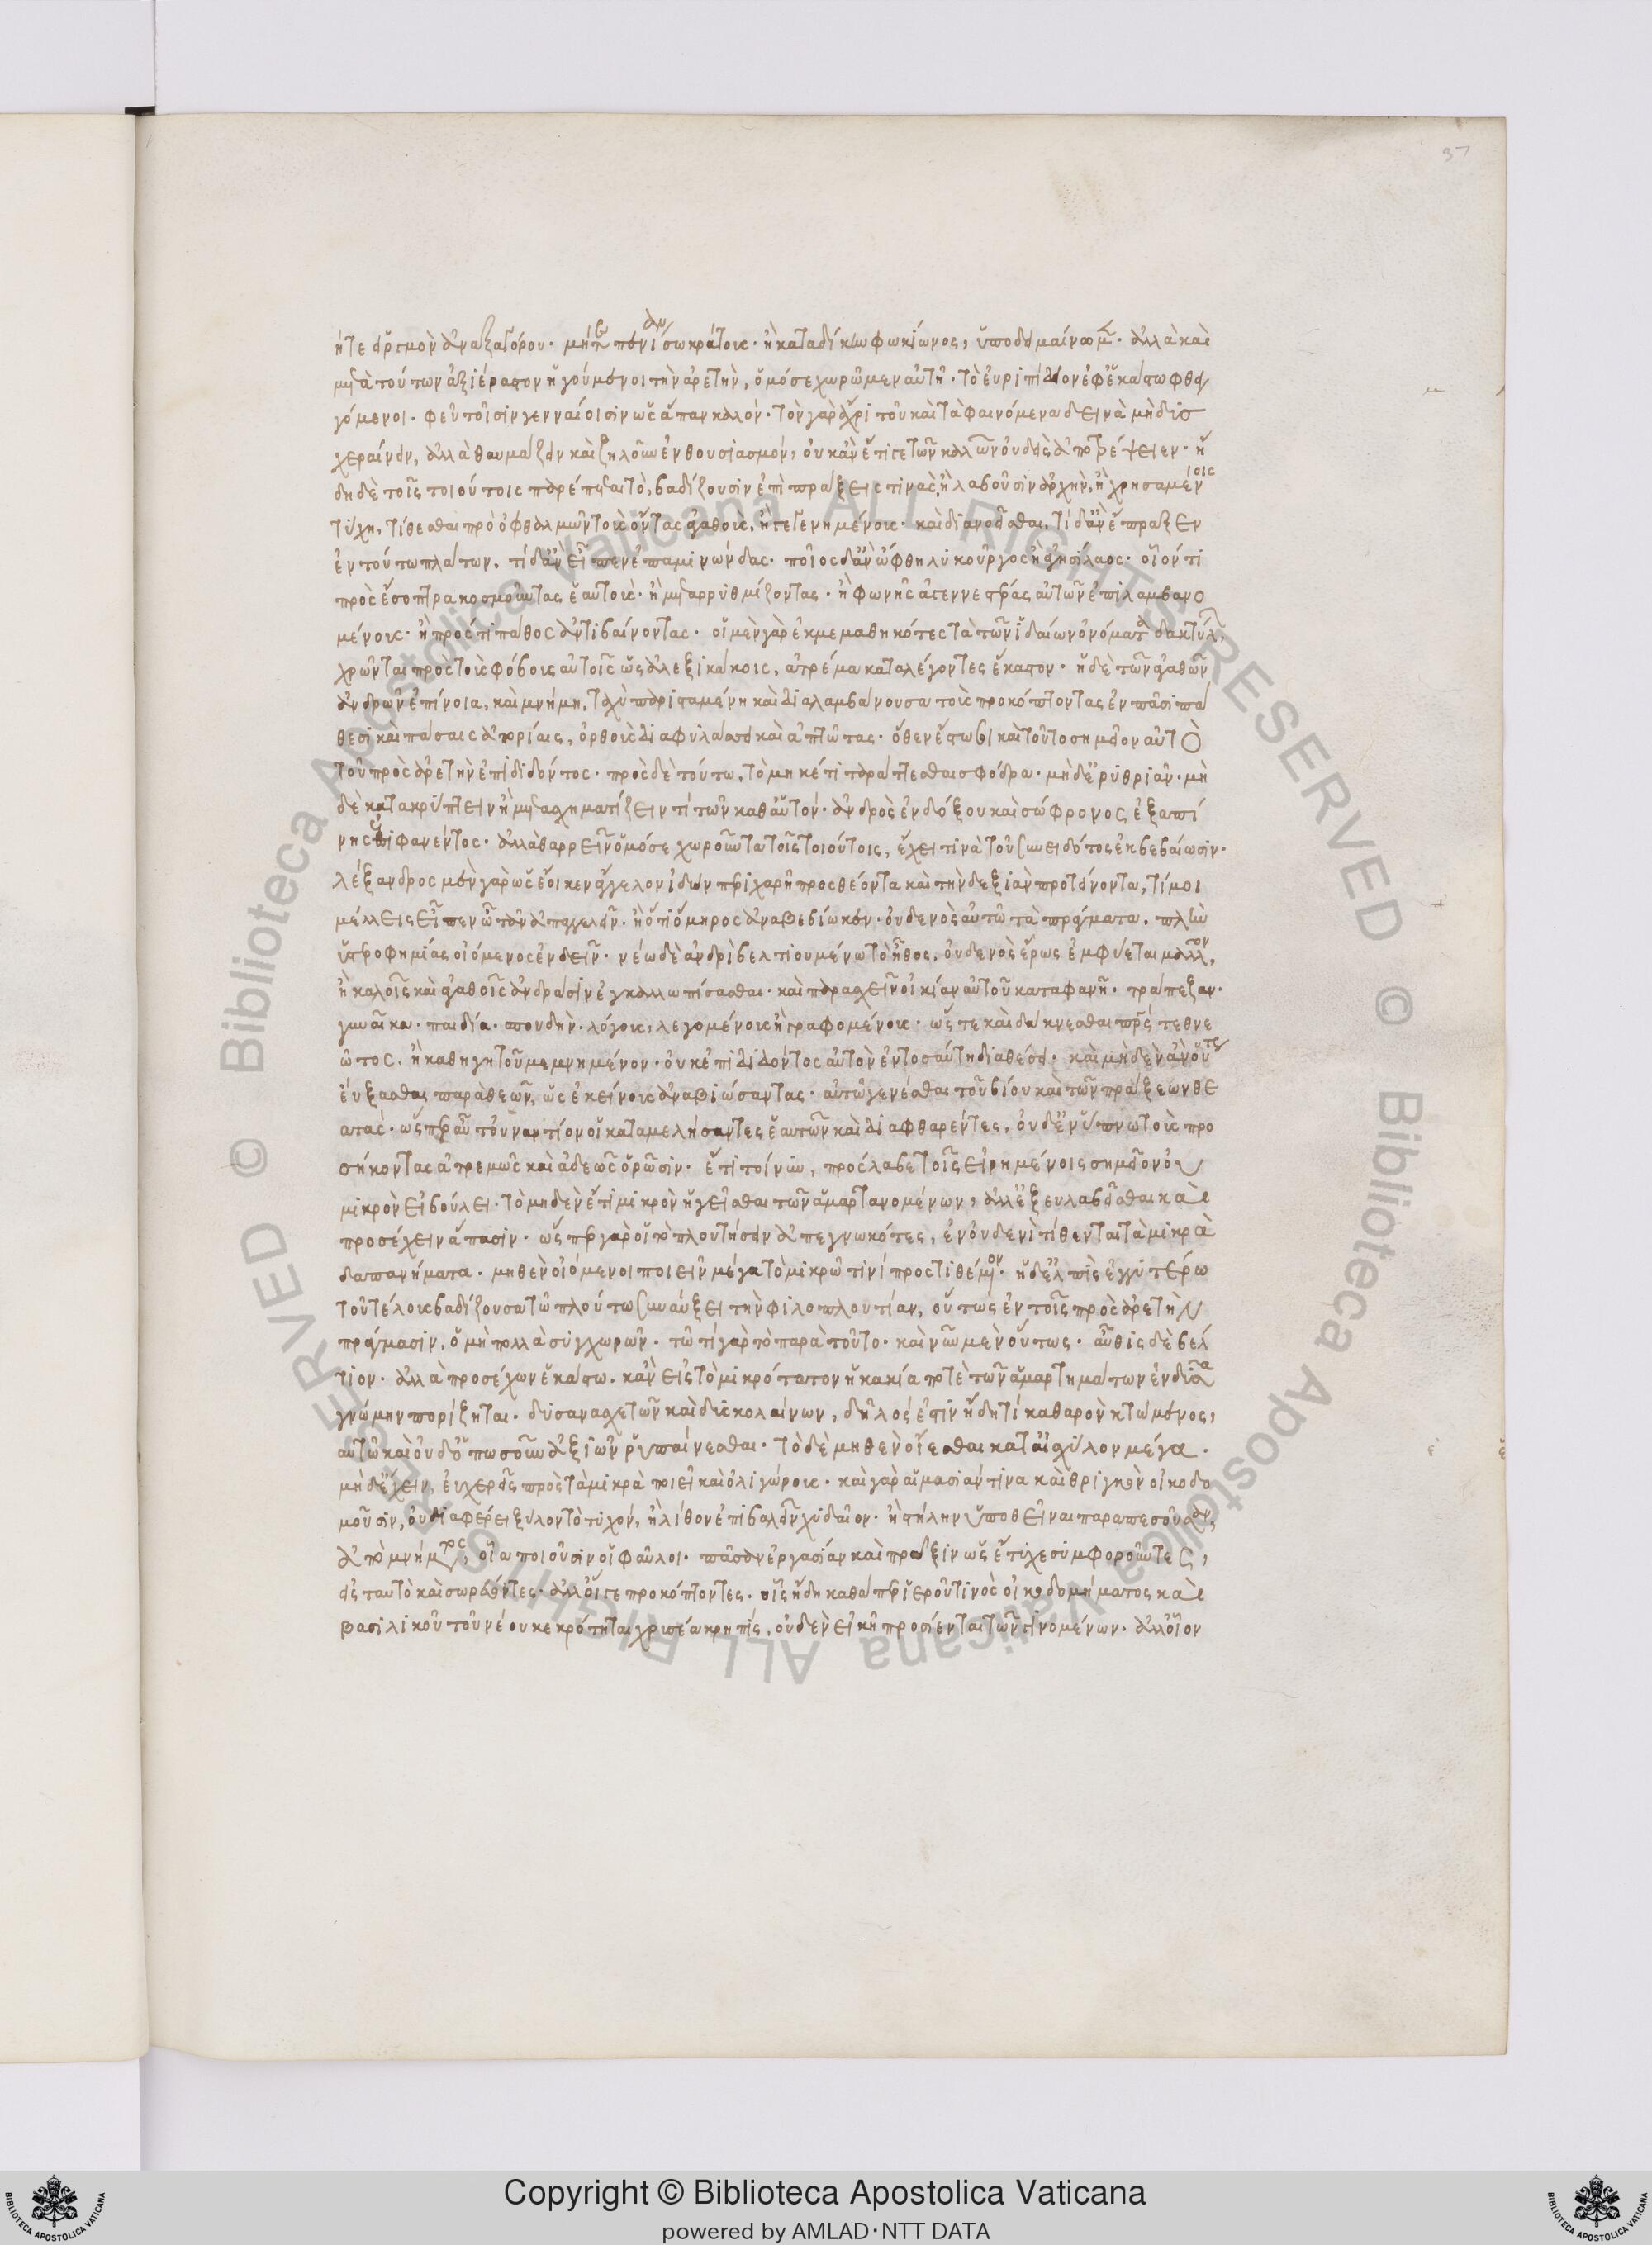 ήτε εἱργμὸν ἀναξαγόρου· μήτε πενίαν σωκράτους· ἢ καταδίκην φωκίωνος, ὑποδειμαίνωμεν· ἀλλὰ καὶ
μετὰ τούτων ἀξιέραστον ἡγούμενοι τὴν ἀρετὴν, ὁμόσε χωρῶμεν αὐτῇ· τὸ εὐριπίδειον ἐφ' ἑκάστω φθεγ
γόμενοι· φεῦ τοῖσιν γενναίοισιν ὡς ἅπαν καλόν· τὸν γὰρ ἄχρι τοῦ καὶ τὰ φαινόμενα δεινὰ μὴ δυσ
χεραίνειν, ἀλλὰ θαυμάζειν καὶ ζηλοῦν ἐνθουσιασμόν, οὐκ ἂν ἔτι τις τῶν καλῶν οὐδεὶς ἀποτρέψειεν· ἤ
δη δὲ τοῖς τοιούτοις παρέπεται τὸ, βαδίζουσιν ἐπὶ πράξεις τινὰς, ἢ λαβοῦσιν ἀρχὴν, ἢ χρησαμένοις
τύχη, τίθεσθαι πρὸ ὀφθαλμῶν τοὺς ὄντας ἀγαθοὺς, ἢ γεγενημένους· καὶ διανοεῖσθαι, τί δ' ἂν ἔπραξεν
ἐν τούτω πλάτων, τί δ' ἂν εἶπεν ἐπαμινώνδας· ποῖος δ' ἂν ὤφθη λυκοῦργος ἢ ἀγησίλαος· οἷόν τι
πρὸς ἔσοπτρα κοσμοῦντας ἑαυτοὺς· ἢ μεταρρυθμίζοντας· ἢ φωνῆς ἀγεννεστέρας αὐτῶν ἐπιλαμβανο
μένους· ἢ πρός τι πάθος ἀντιβαίνοντας· οἱ μὲν γὰρ ἐκμεμαθηκότες τὰ τῶν ἰδαίων ὀνόματα δακτύλων,
χρῶνται πρὸς τοὺς φόβους αὐτοῖς ὡς ἀλεξικάκοις, ἀτρέμα καταλέγοντες ἕκαστον· ἡ δὲ τῶν ἀγαθῶν
ἀνδρῶν ἐπίνοια, καὶ μνήμη, ταχὺ παρισταμένη καὶ διαλαμβάνουσα τοὺς προκόπτοντας ἐν πᾶσι πά
θεσι καὶ πάσαις ἀπορίαις, ὀρθοὺς διαφυλάσσει καὶ ἀπτῶτας· ὅθεν ἔστω σοι καὶ τοῦτο σημεῖον αὐτὸ
τοῦ πρὸς ἀρετὴν ἐπιδιδόντος· πρὸς δὲ τούτω, τὸ μηκέτι ταράττεσθαι σφόδρα· μὴ δ' ἐρυθριᾶν· μὴ
δὲ κατακρύπτειν ἢ μετασχηματίζειν τι τῶν καθ' αὑτόν· ἀνδρὸς ἐνδόξου καὶ σώφρονος ἐξαπί
νης ἐπιφανέντος· ἀλλὰ θαρρεῖν ὁμόσε χωροῦντα τοῖς τοιούτοις, ἔχει τινὰ τοῦ συνειδότος ἐκβεβαίωσιν·
λέξανδρος μὲν γὰρ ὡς ἔοικεν ἄγγελον ἰδὼν περιχαρῆ προσθέοντα καὶ τὴν δεξιὰν προτείνοντα, τί μοι
μέλλεις εἶπεν ὦ τᾶν ἀπαγγελεῖν· ἢ ὅτι ὅμηρος ἀναβεβίωκεν· οὐδενὸς αὐτῶ τὰ πράγματα, πλὴν
ὑστεροφημίας οἰόμενος ἐνδεῖν· νέω δὲ ἀνδρὶ βελτιουμένω τὸ ἦθος, οὐδενὸς ἔρως ἐμφύεται μᾶλλον,
ἢ καλοῖς καὶ ἀγαθοῖς ἀνδράσιν ἐγκαλλωπίσασθαι· καὶ παρασχεῖν οἰκίαν αὐτοῦ καταφανῆ· τράπεζαν·
γυναῖκα· παιδιά· σπουδήν· λόγους, λεγομένους ἢ γραφομένους· ὥστε καὶ δάκνεσθαι πρός τεθνε
ῶτος, ἢ καθηγητοῦ μεμνημένον· οὐκ ἐπιδιδόντος αὐτὸν ἐν τοσαύτη διαθέσει· καὶ μὴ δὲν ἂν οὕτως
εὔξασθαι παρὰ θεῶν, ὡς ἐκείνους ἀναβιώσαντας· αὐτῶ γενέσθαι τοῦ βίου καὶ τῶν πράξεων θε
ατάς· ὥσπερ αὖ τοὐναντίον οἱ καταμελήσαντες ἑαυτῶν καὶ διαφθαρέντες, οὐδ' ἐν ὕπνω τοὺς προ
σήκοντας ἀτρεμῶς καὶ ἀδεῶς ὁρῶσιν· ἔτι τοίνυν, προσλαβε τοῖς εἰρημένοις σημεῖον οὐ
μικρὸν εἰ βούλει· τὸ μηδὲν ἔτι μικρὸν ἡγεῖσθαι τῶν ἁμαρτανομένων, ἀλλ' ἐξευλαβεῖσθαι καὶ
προσέχειν ἅπασιν· ὥσπερ γὰρ οἱ τὸ πλουτήσειν ἀπεγνωκότες, ἐν οὐδενὶ τίθενται τὰ μικρὰ
δαπανήματα· μηθὲν οἰόμενοι ποιεῖν μέγα τὸ μικρῶ τινί προστιθέμενον· ἡ δ' ἐλπὶς ἐγγυτέρω
τοῦ τέλους βαδίζουσα τῶ πλούτω συναύξει τὴν φιλοπλουτίαν, οὕτως ἐν τοῖς πρὸς ἀρετὴν
πράγμασιν, ὁ μὴ πολλὰ συγχωρῶν· τῶ τί γὰρ τὸ παρὰ τοῦτο· καὶ νῦν μὲν οὕτως· αὖθις δὲ βέλ
τιον· ἀλλὰ προσέχων ἑκάστω· κἂν εἰς τὸ μικρότατον ἡ κακία ποτὲ τῶν ἁμαρτημάτων ἐνδῦσα
γνώμην πορίζηται· δυσανασχετῶν καὶ δυσκολαίνων, δῆλός ἐστιν ἤδη τί καθαρὸν κτώμενος,
αὑτῶ καὶ οὐδ' ὁπωσοῦν ἀξιῶν ῥυπαίνεσθαι· τὸ δὲ μηθὲν οἴεσθαι κατ' αἰσχύλον μέγα·
μὴ δ' ἔχειν, εὐχερεῖς πρὸς τὰ μικρὰ ποιεῖ καὶ ὀλιγώρους· καὶ γὰρ αἱμασιάν τινα καὶ θριγκὸν οἰκοδο
μοῦσιν, οὐ διαφέρει ξύλον τὸ τυχόν, ἢ λίθον ἐπιβαλεῖν χυδαῖον· ἢ στήλην ὑποθεῖναι παραπεσοῦσαν,
ἀπὸ μνήματος, οἷα ποιοῦσιν οἱ φαῦλοι· πᾶσαν ἐργασίαν καὶ πρᾶξιν ὡς ἔτυχε συμφοροῦντες,
εἰς ταυτὸ καὶ σωρεύοντες· ἀλλ' οἵγε προκόπτοντες· οἷς ἤδη καθάπερ ἱεροῦ τινὸς οἰκοδομήματος καὶ
βασιλικοῦ τοῦ νέου κεκρότηται χρυσέα κρηπίς, οὐδὲν εἰκῆ προσίενται τῶν γινομένων· ἀλλ' οἷον